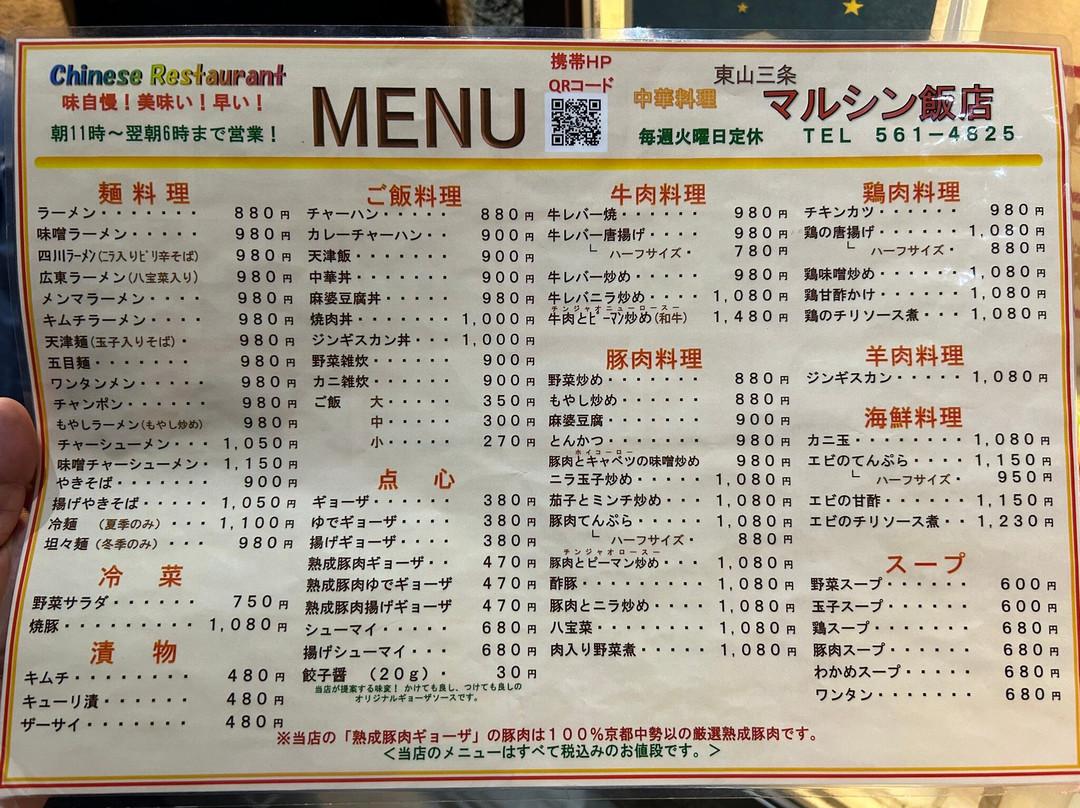 Chinese Restaurant
味自慢！美味い！早い！
朝11時～翌朝6時まで営業！
MENU
携帯HP
QRコード
東山三条
中華料理 マルシン飯店
毎週火曜日定休 TEL 561-4825
麺料理
ラーメン・・・・・・・ 880円
味噌ラーメン・・・・・ 980円
四川ラーメン(ニラ入りピリ辛そば) 980円
広東ラーメン(八宝菜入り) 980円
メンマラーメン・・・・ 980円
キムチラーメン・・・・ 980円
天津麺(玉子入りそば)・ 980円
五目麺・・・・・・・・ 980円
ワンタンメン・・・・・ 980円
チャンポン・・・・・・ 980円
もやしラーメン(もやし炒め) 980円
チャーシューメン・・・ 1,050円
味噌チャーシューメン・ 1,150円
やきそば・・・・・・・ 900円
揚げやきそば・・・・・ 1,050円
冷麺 (夏季のみ)・・・ 1,100円
坦々麺(冬季のみ)・・・ 980円
冷菜
野菜サラダ・・・・・・ 750円
焼豚・・・・・・・・・ 1,080円
漬物
キムチ・・・・・・・・ 480円
キューリ漬・・・・・・ 480円
ザーサイ・・・・・・・ 480円
ご飯料理
チャーハン・・・・・ 880円
カレーチャーハン・・ 900円
天津飯・・・・・・・ 900円
中華丼・・・・・・・ 900円
麻婆豆腐丼・・・・・ 980円
焼肉丼・・・・・・・ 1,000円
ジンギスカン丼・・・ 1,000円
野菜雑炊・・・・・・ 900円
カニ雑炊・・・・・・ 900円
ご飯 大・・・・・ 350円
中・・・・・ 300円
小・・・・・ 270円
点心
ギョーザ・・・・・・ 380円
ゆでギョーザ・・・・ 380円
揚げギョーザ・・・・ 380円
熟成豚肉ギョーザ・・ 470円
熟成豚肉ゆでギョーザ 470円
熟成豚肉揚げギョーザ 470円
シューマイ・・・・・ 680円
揚げシューマイ・・・ 680円
餃子醤 (20g)・ 30円
当店が提案する味変！かけても良し、つけても良しの
オリジナルギョーザソースです。
牛肉料理
牛レバー焼・・・・・・ 980円
牛レバー唐揚げ・・・・ 980円
└ ハーフサイズ・ 780円
牛レバー炒め・・・・・ 980円
牛レバニラ炒め・・・・ 1,080円
チンジャオニューロースー
牛肉とピーマン炒め(和牛) 1,480円
豚肉料理
野菜炒め・・・・・・・ 880円
もやし炒め・・・・・・ 880円
麻婆豆腐・・・・・・・ 900円
とんかつ・・・・・・・ 980円
ホイコーロー
豚肉とキャベツの味噌炒め 980円
ニラ玉子炒め・・・・・ 1,080円
茄子とミンチ炒め・・・ 1,080円
豚肉てんぷら・・・・・ 1,080円
└ ハーフサイズ・ 880円
チンジャオロースー
豚肉とピーマン炒め・・・ 1,080円
酢豚・・・・・・・・・ 1,080円
豚肉とニラ炒め・・・・ 1,080円
八宝菜・・・・・・・・ 1,080円
肉入り野菜煮・・・・・ 1,080円
鶏肉料理
チキンカツ・・・・・・ 980円
鶏の唐揚げ・・・・・・ 1,080円
└ ハーフサイズ・ 880円
鶏味噌炒め・・・・・・ 1,080円
鶏甘酢かけ・・・・・・ 1,080円
鶏のチリソース煮・・・ 1,080円
羊肉料理
ジンギスカン・・・・・ 1,080円
海鮮料理
カニ玉・・・・・・・・ 1,080円
エビのてんぷら・・・・ 1,150円
└ ハーフサイズ・ 950円
エビの甘酢・・・・・・ 1,150円
エビのチリソース煮・・ 1,230円
スープ
野菜スープ・・・・・・ 600円
玉子スープ・・・・・・ 600円
鶏スープ・・・・・・・ 680円
豚肉スープ・・・・・・ 680円
わかめスープ・・・・・ 680円
ワンタン・・・・・・・ 680円
※当店の「熟成豚肉ギョーザ」の豚肉は１００％京都中勢以の厳選熟成豚肉です。
＜当店のメニューはすべて税込みのお値段です。＞